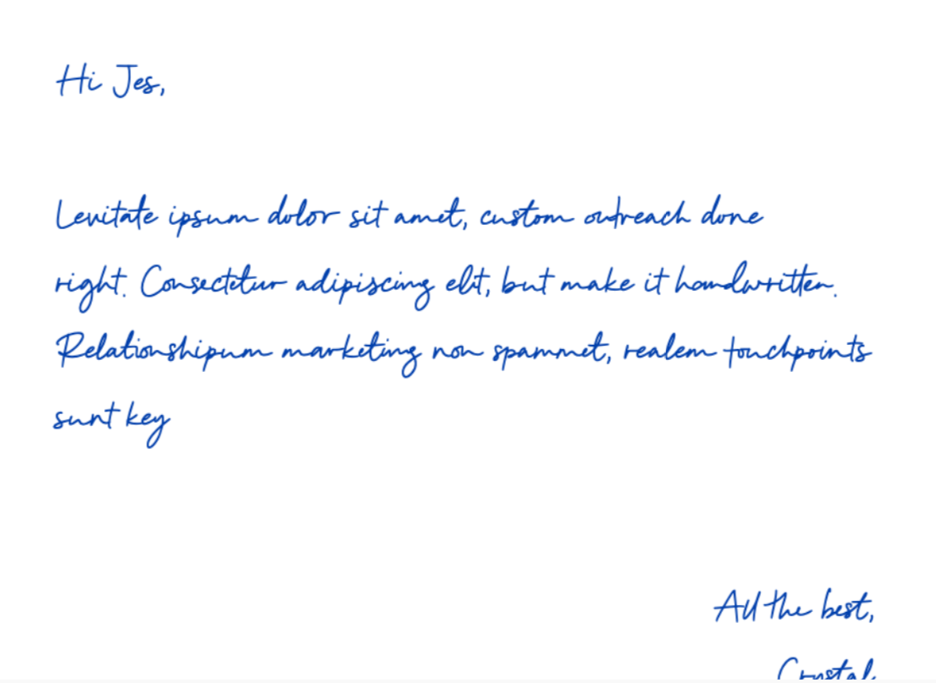 Hi Jes,
Levitate ipsum dolor sit amet, custom outreach done
right. Consectetur adipiscing elit, but make it handwritten.
Relationshipum marketing non spammet, realem touchpoints
sunt key
All the best,
Crystal